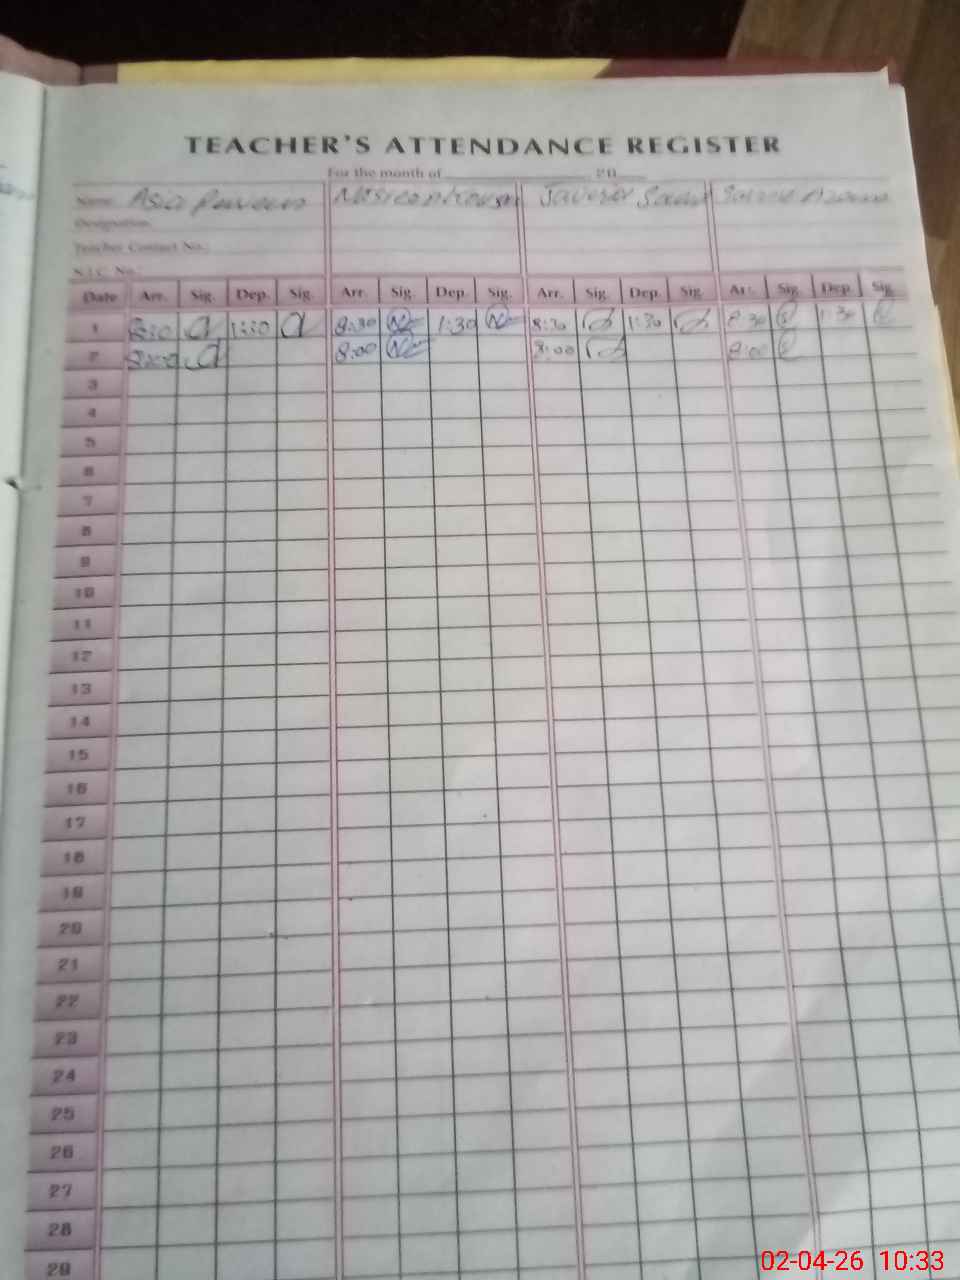 TEACHER'S ATTENDANCE REGISTER
For the month of 20
Name Asia Perveen
Designation
Teacher Contact No.:
N.I.C. No.:
Date Arr. Sig. Dep. Sig. Arr. Sig. Dep. Sig. Arr. Sig. Dep. Sig. Arr. Sig. Dep. Sig.
1 8:30 1:30 8:30 1:30 8:30 1:30 8:30 1:30
2 8:00 8:00 8:00 8:00
3
4
5
6
7
8
9
10
11
12
13
14
15
16
17
18
19
20
21
22
23
24
25
26
27
28
29
02-04-26 10:33